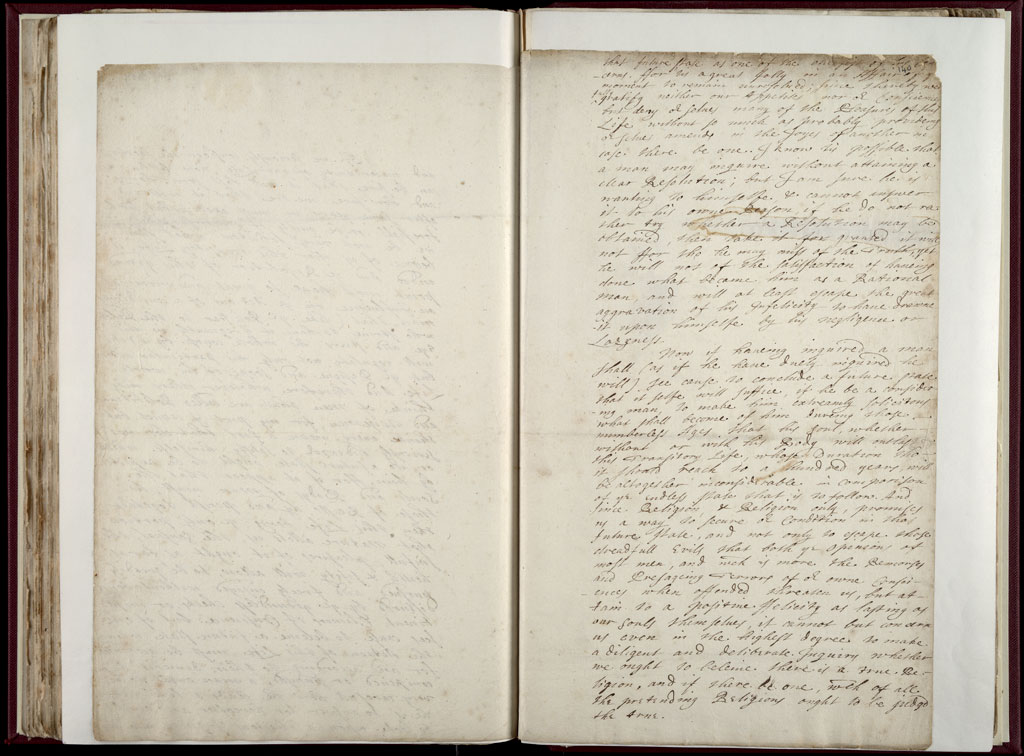 that future state as one of the
-ons. ffor 'tis a great folly in an Affair of yt
moment to remain unresolved, since thereby we
gratify neither our Appetite nor or Conscience
but deny or selves many of the Pleasures of this
Life without so much as probably providing
or selves amends in the Joyes of another in
case there be one. I know tis possible that
a man may inquire without attaining a
clear Resolution; but I am sure he is
wanting to himselfe & cannot answer
it to his owne Reason, if he do not ra-
ther try whether a Resolution may be
obtained, then take it for granted it will
not ffor tho he may miss of the Truth, yet
he will not of the satisfaction of having
done what became him as a Rational
man, and will at least escape the great
aggravation of his Infelicity to have drawne
it upon himselfe by his negligence or
Lazyness.
Now if haveing inquired a man
shall (as if he have duely inquired he
will) see cause to conclude a future state
that it selfe will suffice, if he be a consider-
ing man, to make him extreamly solicitous
what shall become of him during those
numberless Ages, that his soul, whether
without or with his Body will outlast
this Transitory Life, whose duration tho
it should reach to a hundred years, will
be altogether inconsiderable in comparison
of ye endless state that is to follow. And
since Religion, & Religion only, promises
us a way to secure or Condition in that
future state, and not only to escape those
dreadfull Evils that both ye opinions of
most men, and wch is more the Remorses
and Presageing Terrors of or owne Consci-
ences when offended threaten us, but at-
tain to a positive ffelicity as lasting as
our souls themselves, it cannot but concern
us even in the highest degree to make
a diligent and deliberate Inquiry whether
we ought to beleive there is a true Re-
ligion, and if there be one, wch of all
the pretending Religions ought to be judgd
the true.